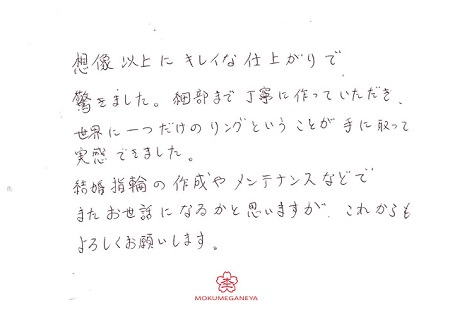 想像以上にキレイな仕上がりで
驚きました。細部まで丁寧に作っていただき、
世界に一つだけのリングということが手に取って
実感できました。
結婚指輪の作成やメンテナンスなどで
またお世話になるかと思いますが、これからも
よろしくお願いします。
MOKUMEGANEYA